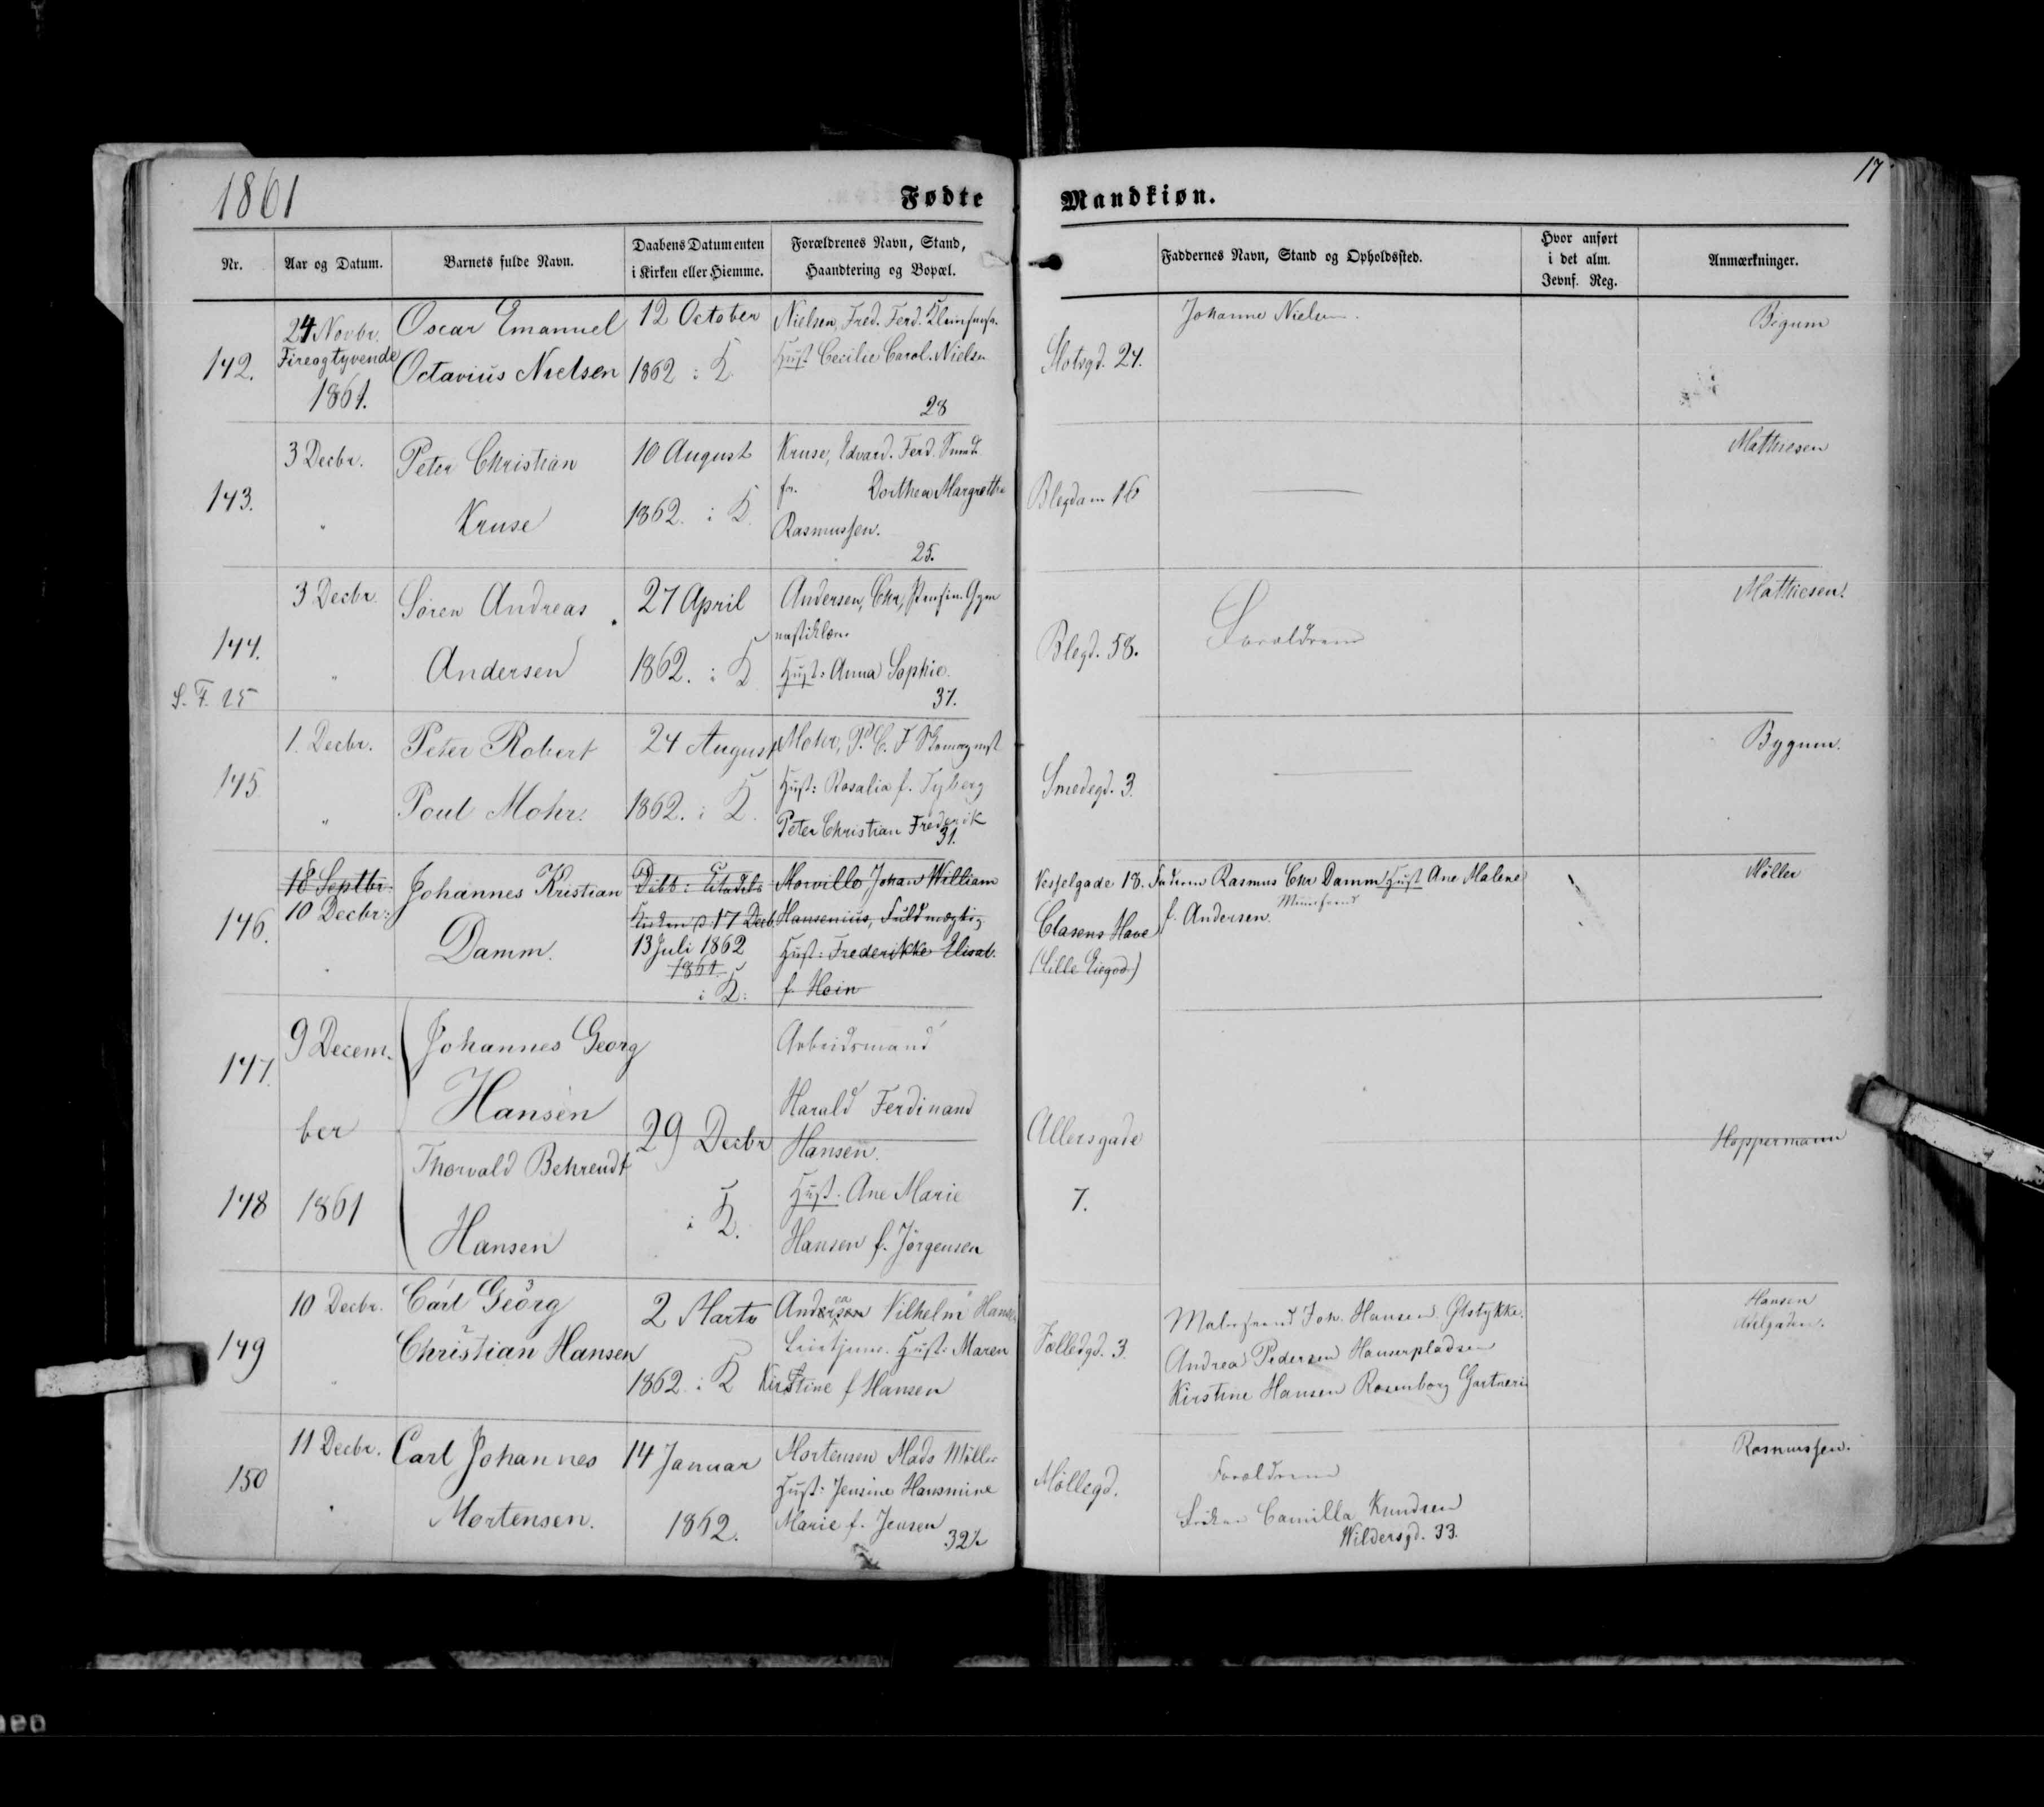 1861
Fødte
Mandkiøn.
17
Nr.
Aar og Datum.
Barnets fulde Navn.
Daabens Datum enten
i Kirken eller Hiemme.
Forældrenes Navn, Stand,
Haandtering og Bopæl.
Faddernes Navn, Stand og Opholdssted.
Hvor anført
i det alm.
Jevnf. Reg.
Anmærkninger.
142.
24 Novbr.
Fireogtyvende
1861.
Oscar Emanuel
Octavius Nielsen
12 October
1862 i K
Nielsen, Fred. Ferd.
Hust Cecilie Carol. Nielsen
28
Slotsgd. 24.
Johanne Nielsen.
Bigum
143.
3 Decbr.
"
Peter Christian
Kruse
10 August
1862. i K.
Kruse, Edvard. Ferd. Smed
fr. Dorthea Margrethe
Rasmussen.
25.
Blegdam 16
Mathiesen
144.
S. F. 25
3 Decbr.
"
Søren Andreas
Andersen
27 April
1862. i K
Andersen, Chr, Gym
nastiklær.
Hust: Anna Sophie.
37.
Blegd. 58.
Forældrene
Mathiesen.
145
1. Decbr.
"
Peter Robert
Poul Mohr.
24 August
1862. i K.
Mohr, P. C. F
Hust: Rosalia f. Tyberg
Peter Christian Frederik
31.
Smedegd. 3.
Bygum.
146.
18 Septbr:
10 Decbr:
Johannes Kristian
Damm.
Døbt i Citadels
Kirken d. 17 Decb.
13 Juli 1862
1861.
i K:
Morville, Johan William
Hansenius, Fuldmægtig
Hust: Frederikke Elisab.
f. Hein
Vesselgade 18.
Clasens Have
(Lille Eiegod.)
Faderen Rasmus Chr Damm Hust Ane Malene
f. Andersen. Muursvend
Møller
147.
9 Decem-
ber
Johannes Georg
Hansen
148
1861
Thorvald Behrendt
Hansen
29 Decbr
i K.
Arbeidsmand
Harald Ferdinand
Hansen.
Hust. Ane Marie
Hansen f. Jörgensen
Allersgade
7.
Hoppermann
149
10 Decbr.
Carl Georg
Christian Hansen
2 Marts
1862 i K
Andersen Vilhelm Hansen
Hust: Maren
Kirstine f Hansen
Fælledgd. 3.
Malersvend Joh. Hansen Ølstykke.
Andrea Pedersen Hauserpladsen
Kirstine Hansen Rosenborg Gartneri
Hansen
Adelgaden.
150
11 Decbr.
Carl Johannes
Mortensen.
14 Januar
1862.
Mortensen Mads Møller
Hust: Jensine Hansmine
Marie f. Jensen
32½
Møllegd.
Forældrene
Frøken Camilla Knudsen
Wildersgd. 33.
Rasmussen.